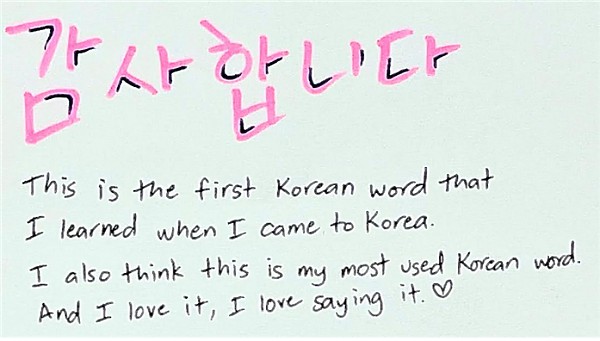 감사합니다
This is the first Korean word that
I learned when I came to Korea.
I also think this is my most used Korean word.
And I love it, I love saying it. ♡